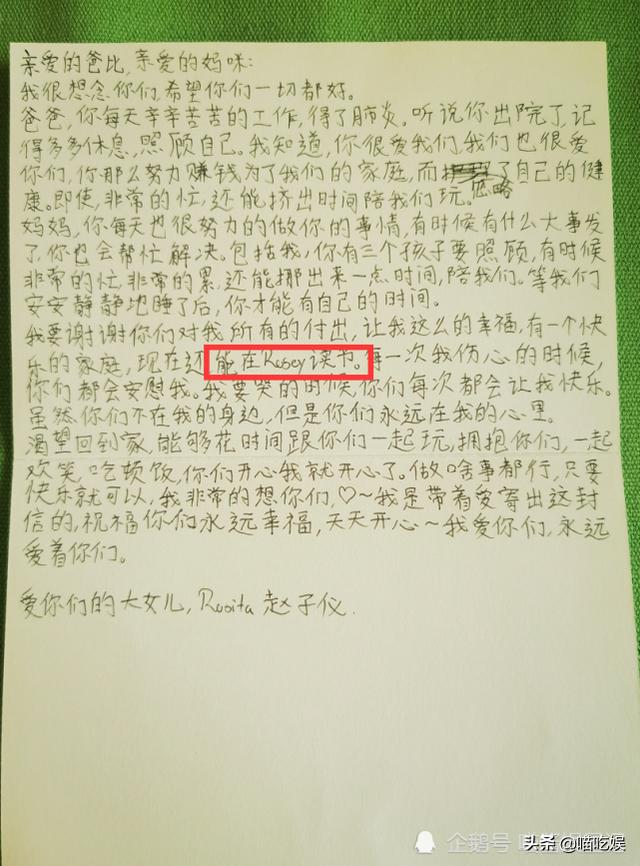 亲爱的爸比,亲爱的妈咪:
我很想念你们,希望你们一切都好。
爸爸,你每天辛辛苦苦的工作,得了肺炎。听说你出院了,记
得多多休息,照顾自己。我知道,你很爱我们,我们也很爱
你们,你那么努力赚钱为了我们的家庭,而忽略了自己的健
康。即使,非常的忙,还能挤出时间陪我们玩。
妈妈,你每天也很努力的做你的事情,有时候有什么大事发
了,你也会帮忙解决。包括我,你有三个孩子要照顾,有时候
非常的忙,非常的累,还能挪出来一点时间,陪我们。等我们
安安静静地睡了后,你才能有自己的时间。
我要谢谢你们对我所有的付出,让我这么的幸福,有一个快
乐的家庭,现在还能在Rosey读书。每一次我伤心的时候,
你们都会安慰我。我要哭的时候,你们每次都会让我快乐。
虽然你们不在我的身边,但是你们永远在我的心里。
渴望回到家,能够花时间跟你们一起玩,拥抱你们,一起
欢笑,吃顿饭,你们开心我就开心了。做啥事都行,只要
快乐就可以,我非常的想你们,♡~我是带着爱寄出这封
信的,祝福你们永远幸福,天天开心~我爱你们,永远
爱着你们。
爱你们的大女儿,Rosita 赵子仪.
企鹅号
头条 @喵吃娱